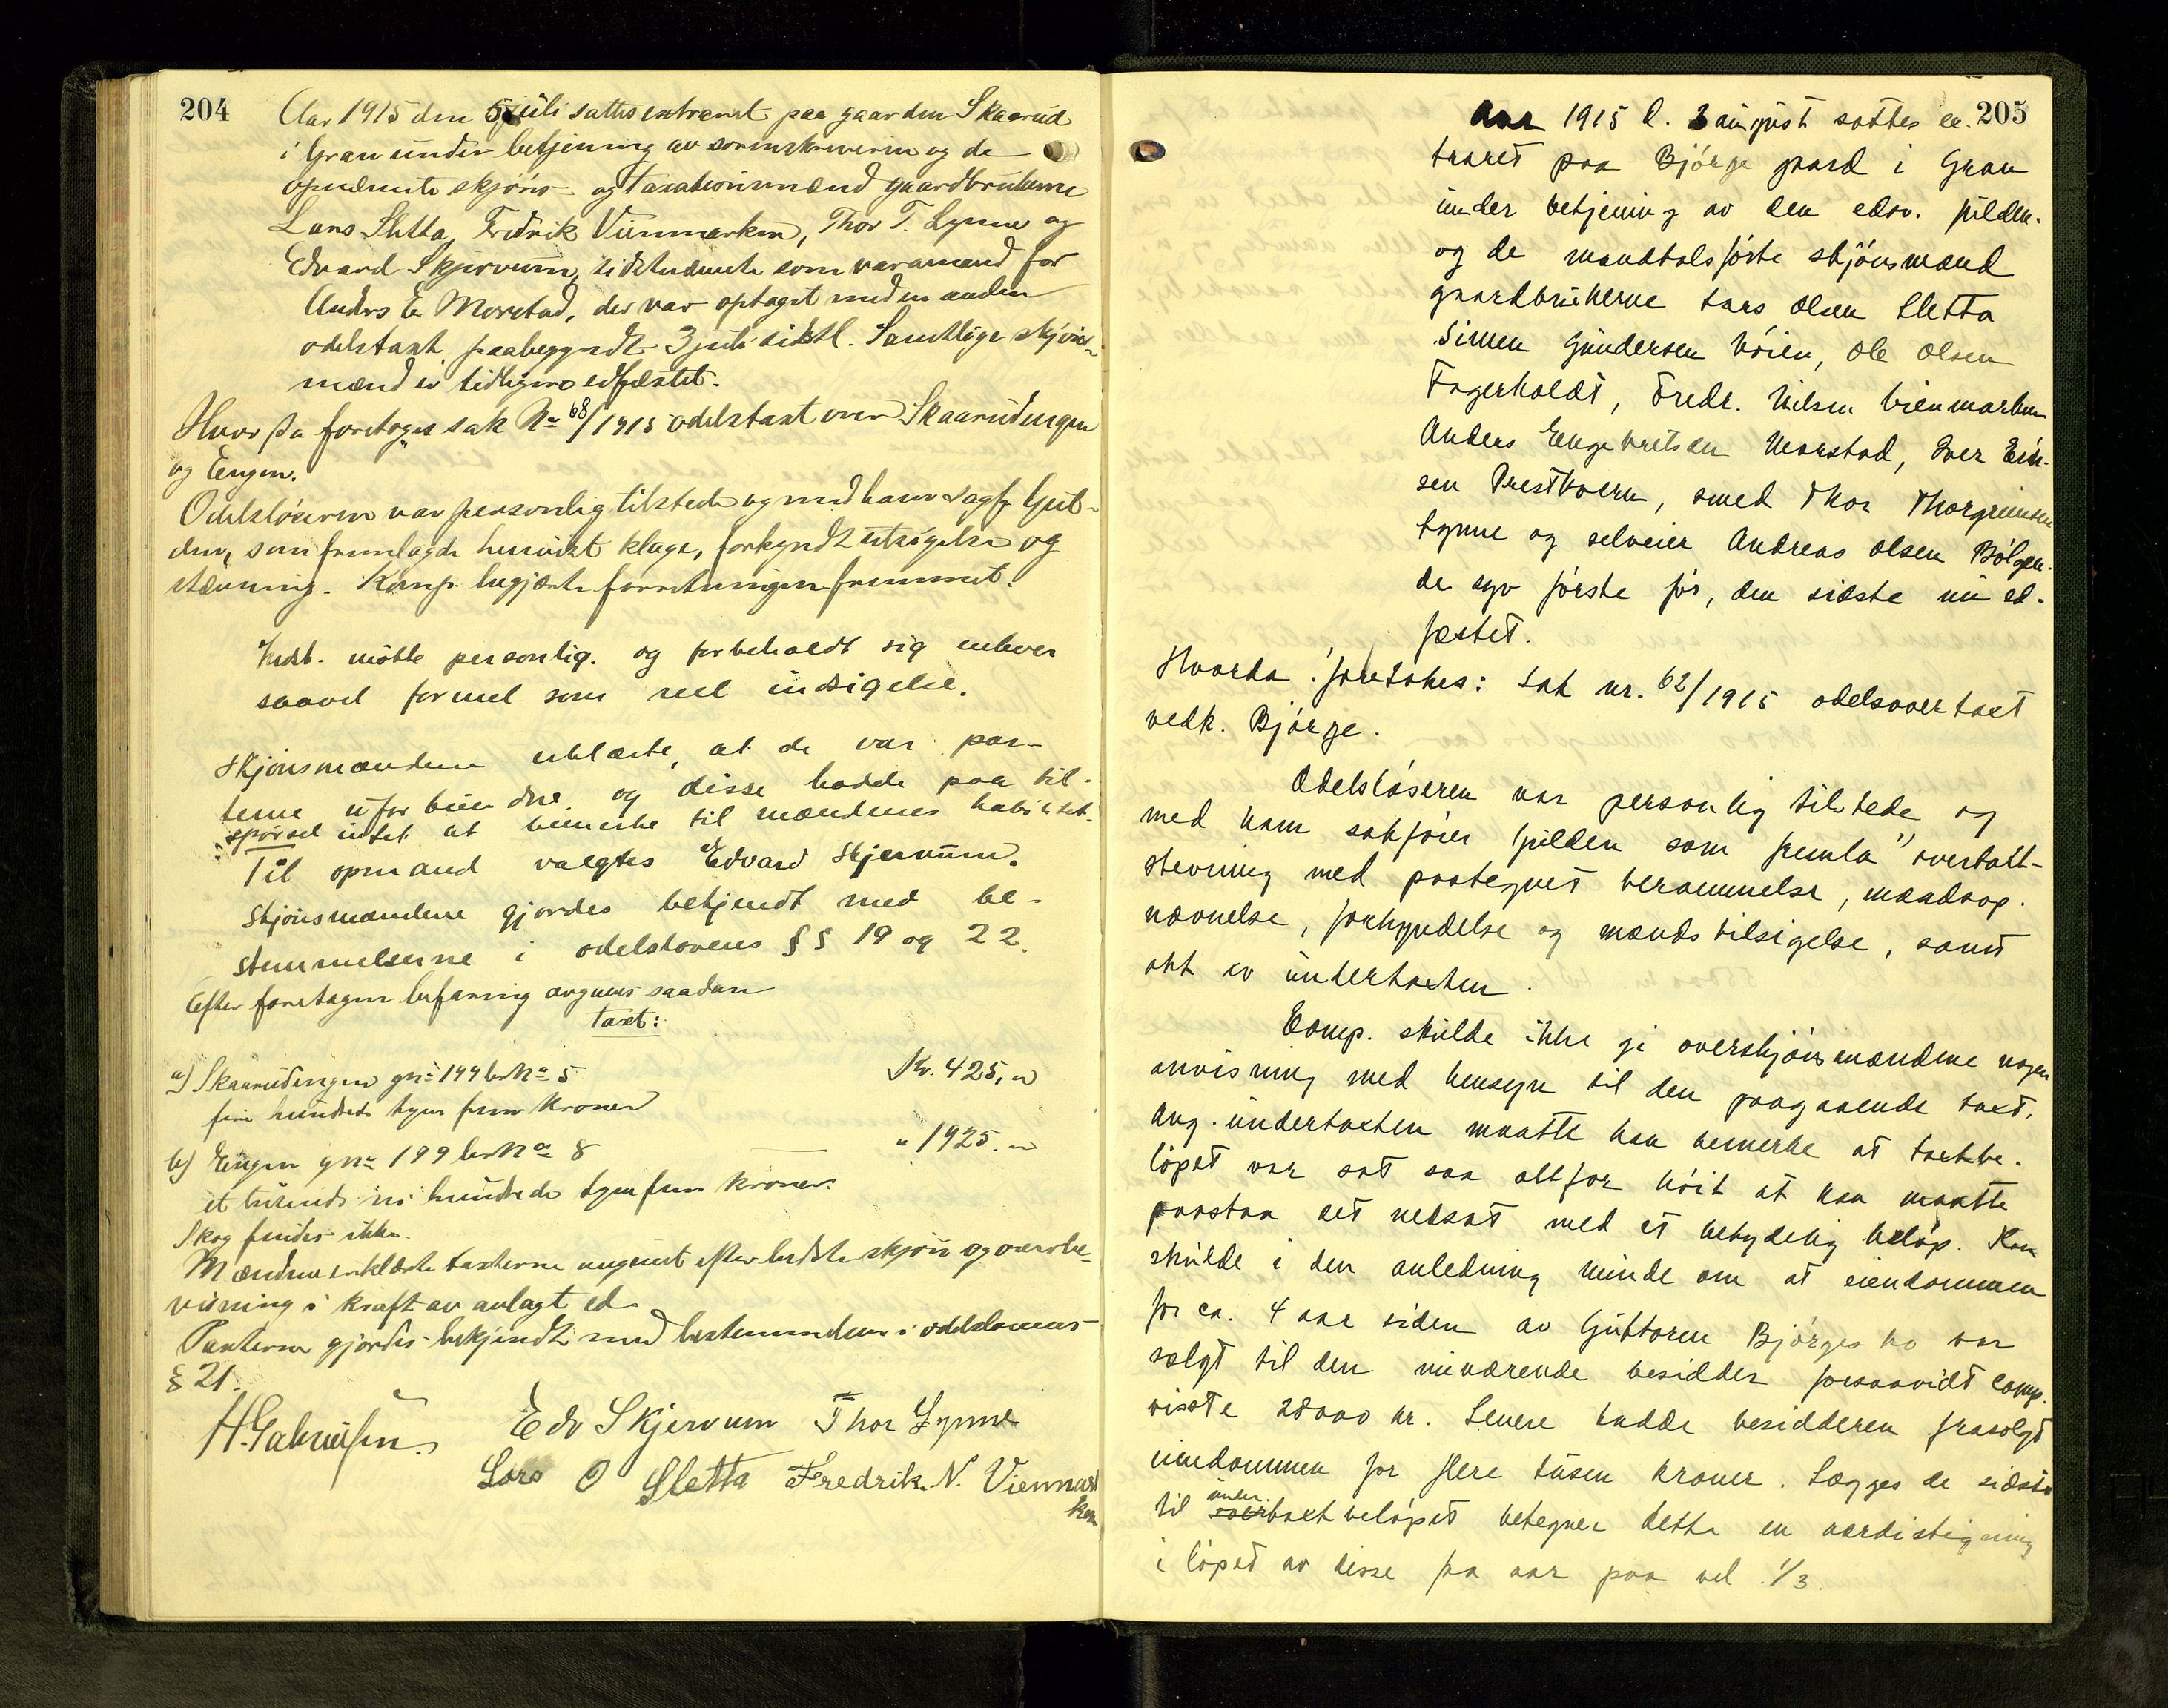 204
Aar 1915 den 5 juli sattes extraret paa gaarden Skaarud
i Gran under betjening av sorenskriveren og de
opnævnte skjöns- og taxationsmænd gaardbrukerne
Lars Sletta, Fredrik Vienmarken, Thor T. Lynne og
Edvard Skjervum, sidstnævnte som varamand for
Anders E. Morstad, der var optaget med en anden
odelstaxt, paabegyndt 3 juli sidstl. Samtlige skjöns-
mænd er tidligere edfæstet.
Hvor da foretoges sak No 68/1915 odelstaxt over Skaarudengen
og Engen.
Odelslöseren var personlig tilstede og med ham sagf. Gul-
den, som fremlagde henvist klage, forkyndt utsigelse og
stævning. Komp. begjærte forretningen fremmet.
Indst. mötte personlig og forbeholdt sig enhver
saavel formel som reel indsigelse.
Skjönsmændene erklærte, at de var par-
terne uforbundne og disse hadde paa til-
spörsel intet at bemerke til mændenes habilitet.
Til opmand valgtes Edvard Skjervum.
Skjönsmændene gjordes bekjendt med be-
stemmelserne i odelslovens §§ 19 og 22.
Efter foretagen befaring avgaves saadan
taxt:
a) Skaarudengen gno 199 brNo 5 Kr. 425,00
fire hundrede tyve fem kroner
b) Engen gno 199 brNo 8 " 1925.00
et tusinde ni hundrede tyve fem kroner.
Skog findes ikke.
Mændene erklærte taxterne avgivet efter bedste skjön og overbe-
visning i kraft av avlagt ed.
Parterne gjordes bekjendt med bestemmelsen i odelslovens
§ 21.
H. Gabrielsen. Edv Skjervum Thor Lynne
Lars O Sletta Fredrik. N. Vienmar
ken
205
Aar 1915 d. 3 august sattes ex-
traret paa Bjørge gaard i Gran
under betjening av den edsv. fuldm.
og de mandtalsförte skjönsmænd
gaardbrukerne Lars Olsen Sletta
Simen Gundersen Höien, Ole Olsen
Fagerholdt, Fredr. Nilsen Vienmarken
Anders Engebretsen Morstad, Iver
sen Prestkvern, smed Thor Thorgrimsen
Lynne og selveier Andreas Olsen Bölgen.
de syv förste för, den sidste nu ed-
fæstet.
Hvorda foretokes: Sak nr. 62/1915 odelsovertaxt
vedk. Bjørge.
Odelslöseren var personlig tilstede og
med ham sakförer Gulden som fremla overtaxt-
stevning med paategnet berammelse, mandsop-
nævnelse, forkyndelse og mandstilsigelse, samt
akt av undertaxten.
Comp. skulde ikke gi overskjönsmændene nogen
anvisning med hensyn til den paagaaende taxt.
Ang. undertaxten maatte han bemerke at taxtbe-
löpet var sat saa altfor höit at han maatte
paastaa det nedsat med et betydelig belöp. Han
skulde i den anledning minde om at eiendommen
for ca. 4 aar siden av Guttorm Bjørges bo var
solgt til den nuværende besidder forsaavidt comp.
visste 28000 kr. Senere hadde besidderen frasolgt
eiendommen for flere tusen kroner. Lægges de sidste
til undertaxtbelöpet betegner dette en værdistigning
i löpet av disse faa aar paa vel 1/3.